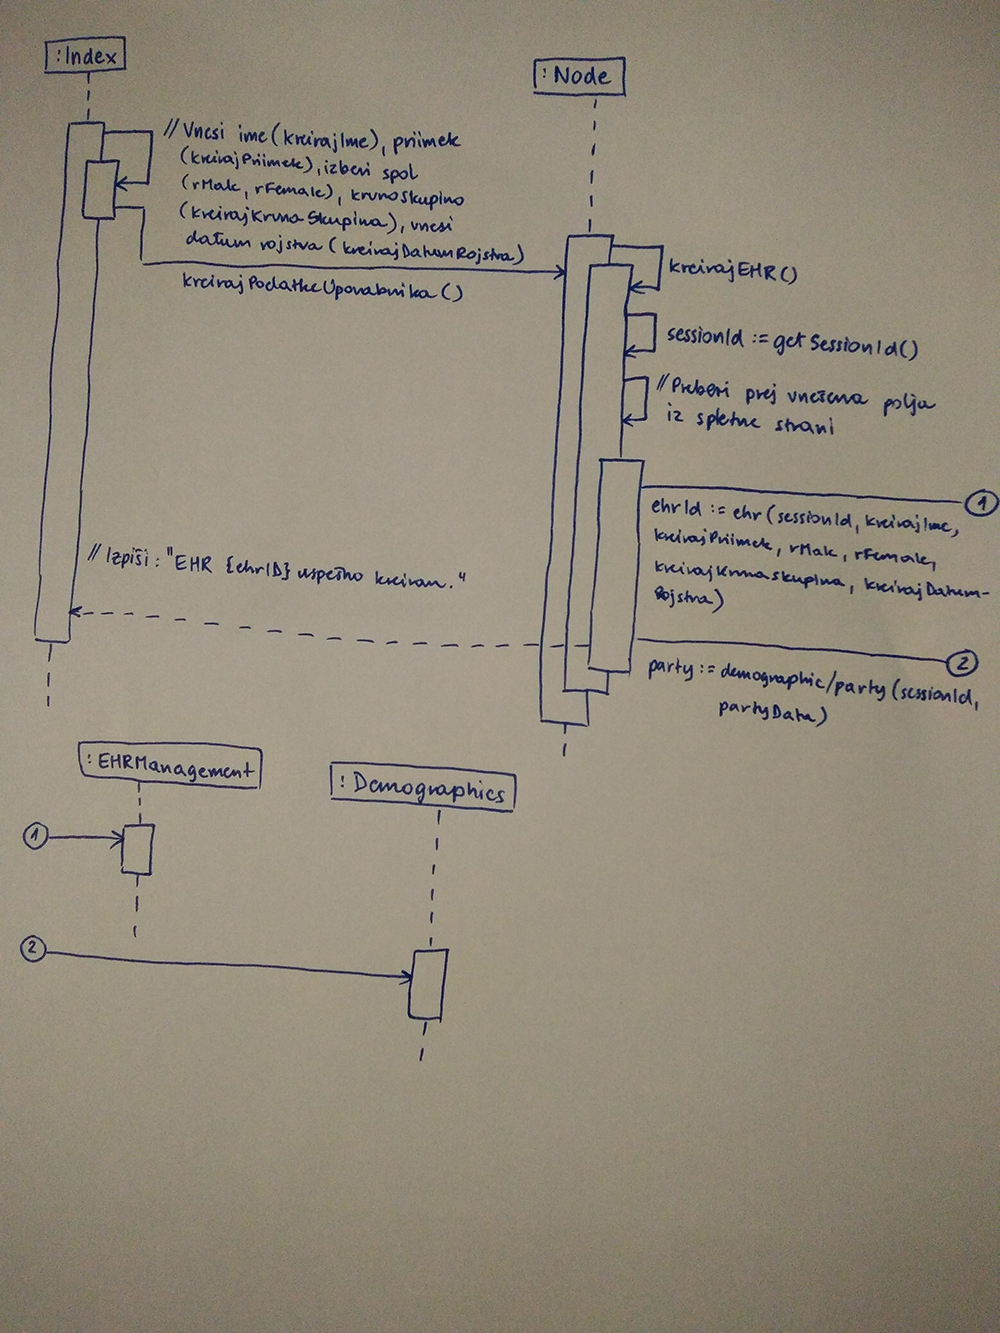 :Index
:Node
// Vnesi ime (kreirajIme), priimek
(kreirajPriimek), izberi spol
(rMale, rFemale), krvno skupino
(kreirajKrvnaSkupina), vnesi
datum rojstva (kreirajDatumRojstva)
kreirajPodatkeUporabnika ()
kreirajEHR ()
sessionId := getSessionId()
// Preberi prej vnešena polja
iz spletne strani
1
ehrId := ehr (sessionId, kreirajIme,
kreirajPriimek, rMale, rFemale,
kreirajKrvnaSkupina, kreirajDatum-
Rojstva)
// Izpiši: "EHR {ehrID} uspešno kreiran."
2
party := demographic/party (sessionId,
partyData)
:EHRManagement
:Demographics
1
2